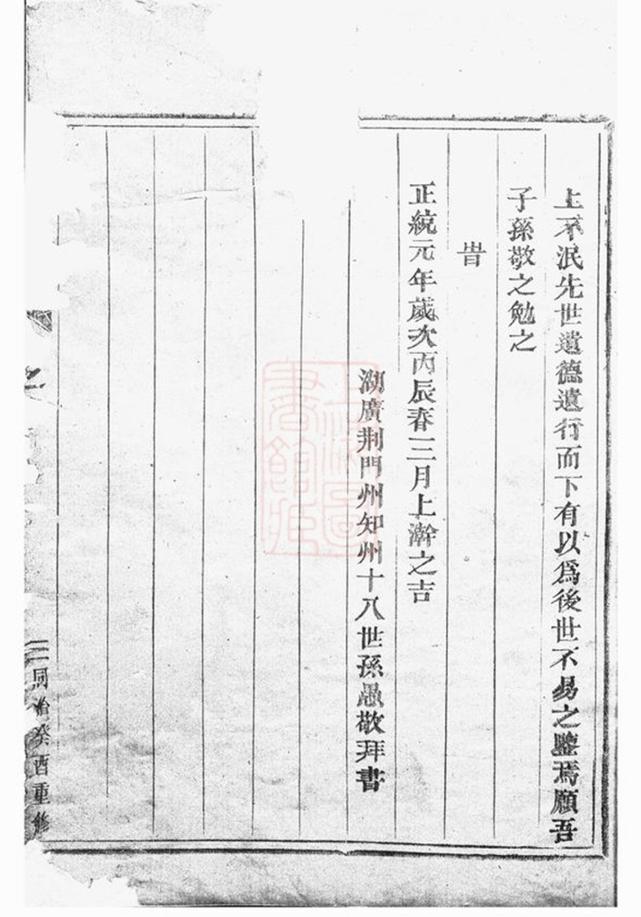 上不泯先世遺德遺行而下有以爲後世不易之鑒焉願吾
子孫敬之勉之
旹
正統元年歲次丙辰春三月上澣之吉
湖廣荆門州知州十八世孫愚敬拜書
上海圖書館藏
之
三
同治癸酉重修